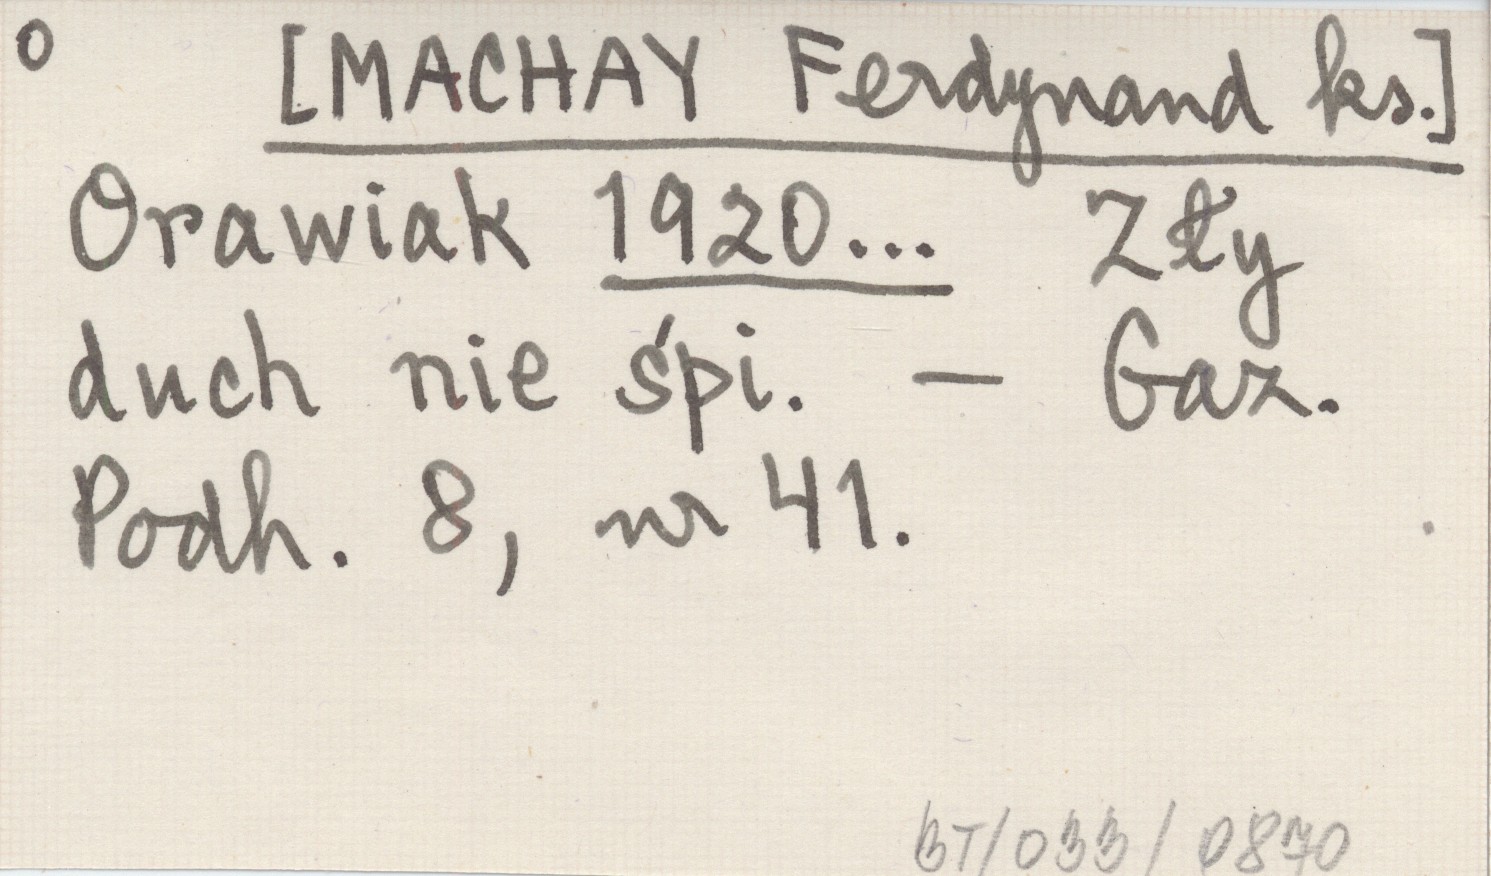 o [MACHAY Ferdynand ks.]
Orawiak 1920... Zły
duch nie śpi. — Gaz.
Podh. 8, nr 41.
BT/033/0870